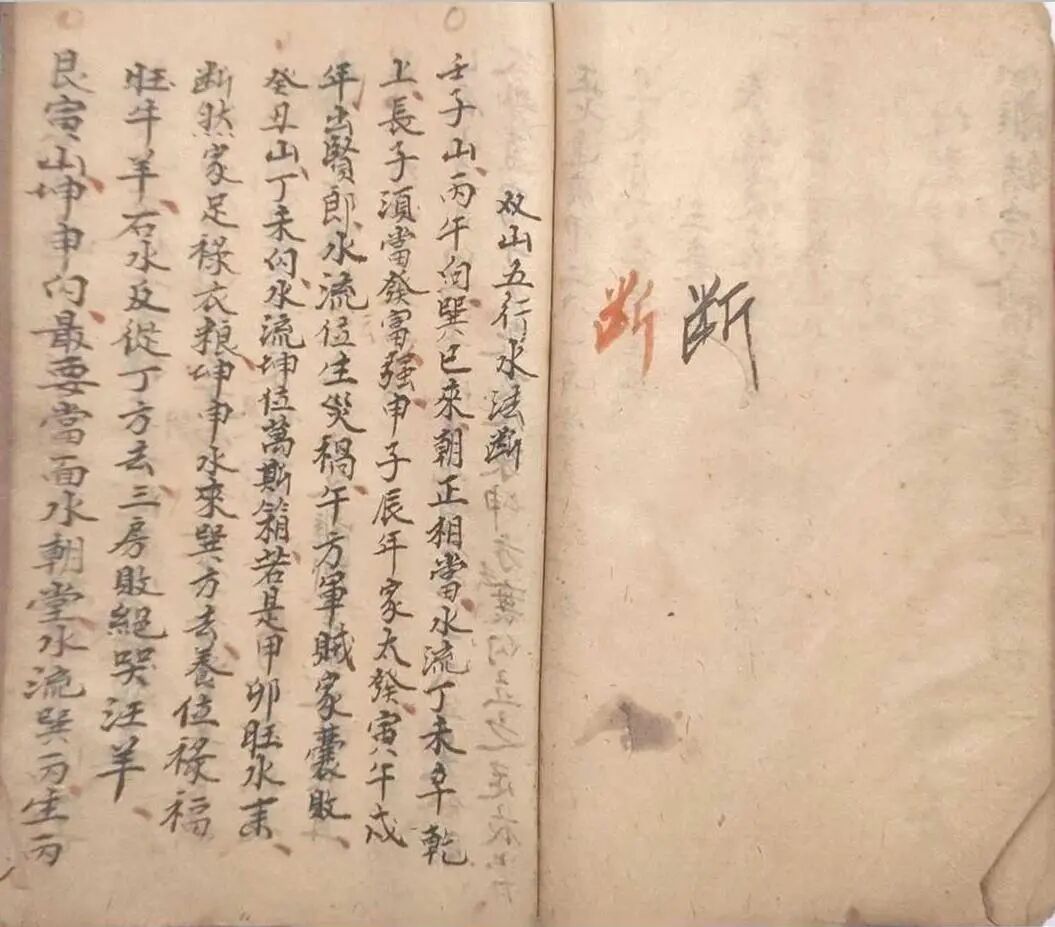 断 断
双山五行水法断
壬子山丙午向巽巳來朝正相當水流丁未辛乾
上長子須當發富强申子辰年家太發寅午戌
年出賢郎水流位生災禍午方軍賊家囊敗
癸丑山丁未向水流坤位萬斯箱若是甲卯旺水来
断然家足祿衣粮坤申水來巽方去養位祿福
旺牛羊右水反從丁方去三房敗絕哭汪羊
艮寅山坤申向最要當面水朝堂水流巽丙生丙